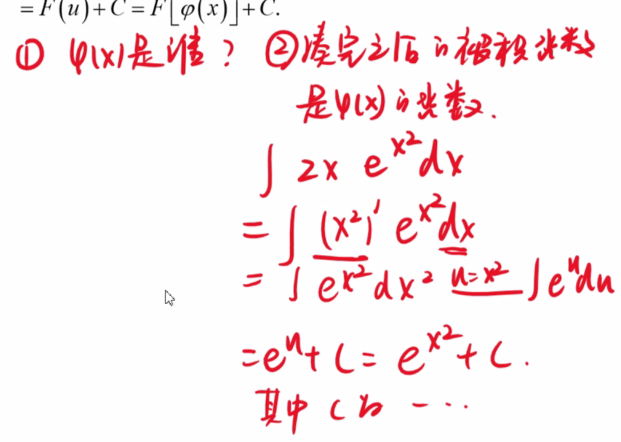 = F(u)+C = F[φ(x)]+C.
① φ(x)是谁? ②凑完之后的被积函数
是φ(x)的函数.
∫ 2x e^{x²} dx
= ∫ (x²)' e^{x²} dx
= ∫ e^{x²} dx² u=x² ∫ e^u du
= e^u + C = e^{x²} + C.
其中 C 为 - ...